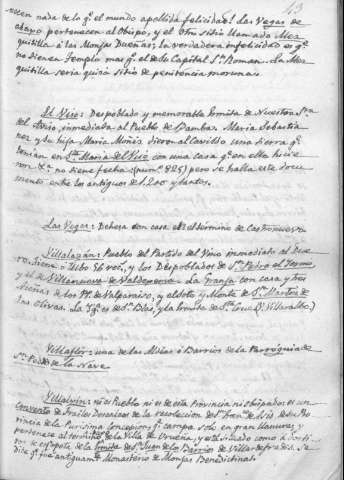 43
recen nada de lo q.e el mundo apellida felicidad! Las Vegas de
pertenecen al Obispo, y el otro sitio llamado Mez
quitilla a las Monjas Dueñas; la verdadera infelicidad es q.e
no tienen Templo mas q.e el de su Capital S.n Roman. La Mez
quitilla seria quiza sitio de penitencia
El Viso: Despoblado y memorable Ermita de Nuestra S.ra
del Viso, inmediata al Pueblo de Bamba. Maria Sebastia
nez y su hija Maria Muñiz dieron al Cavildo una tierra q.e
tenian en S.ta Maria del Viso con una casa q.e en ella hicie
ron &.a no tiene fecha (num.o 925) pero se halla este docu
mento entre los antiguos de 1200 y tantos.
Las Vegas: Dehesa con casa en el termino de Castronuevo
Villalazán: Pueblo del Partido del Vino inmediato al Due
ro, tiene 86 vec.s, y los Despoblados de S.n Pedro el
y el de Villanueva de Valdemoro. La Granja con casa y tres
Aceñas de los PP. de Valparaiso, y el soto y Monte de S.n Martin de
las Olivas. La Ygl.a es de S.n Blas, y la Ermita de S.ta Cruz (V. Villaralbo.)
Villaflor: una de las Aldeas o Barrios de la Parroquia de
S.n Pedro de la Nave
Villalvin: ni es Pueblo ni es de esta Provincia ni Obispado: es un
convento de Frailes Descalzos de la recoleccion de S.n Fran.co de Asis de su Pro
vincia de la Purisima Concepcion; q.e campa solo en gran llanura; y
pertenece al termino de la Villa de Urueña, y está situado como a
de la Ermita de S.n Juan de los Barrios de Villardefrades. Se
dice q.e fue antiguam.te Monasterio de Monjas Benedictinas.